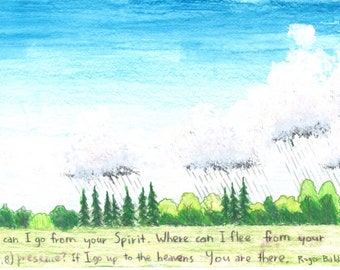 can I go from your Spirit. Where can I flee from your
8) presence? If I go up to the heavens You are there. Roger Bald